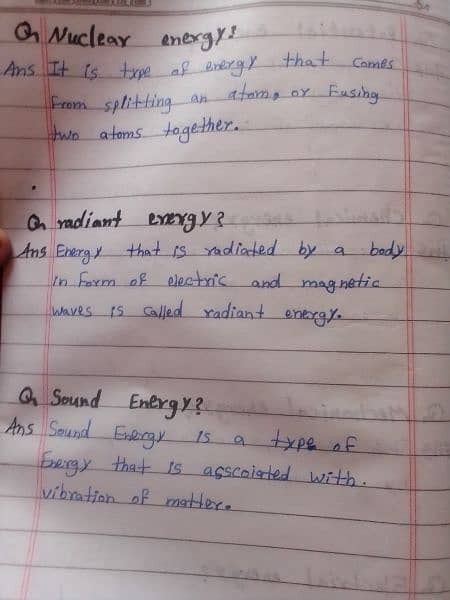 Q Nuclear energy?
Ans It is type of energy that comes
from splitting an atom, or Fusing
two atoms together.
Q radiant energy?
Ans Energy that is radiated by a body
in form of electric and magnetic
waves is called radiant energy.
Q Sound Energy?
Ans Sound Energy is a type of
Energy that is asscoiated with.
vibration of matter.